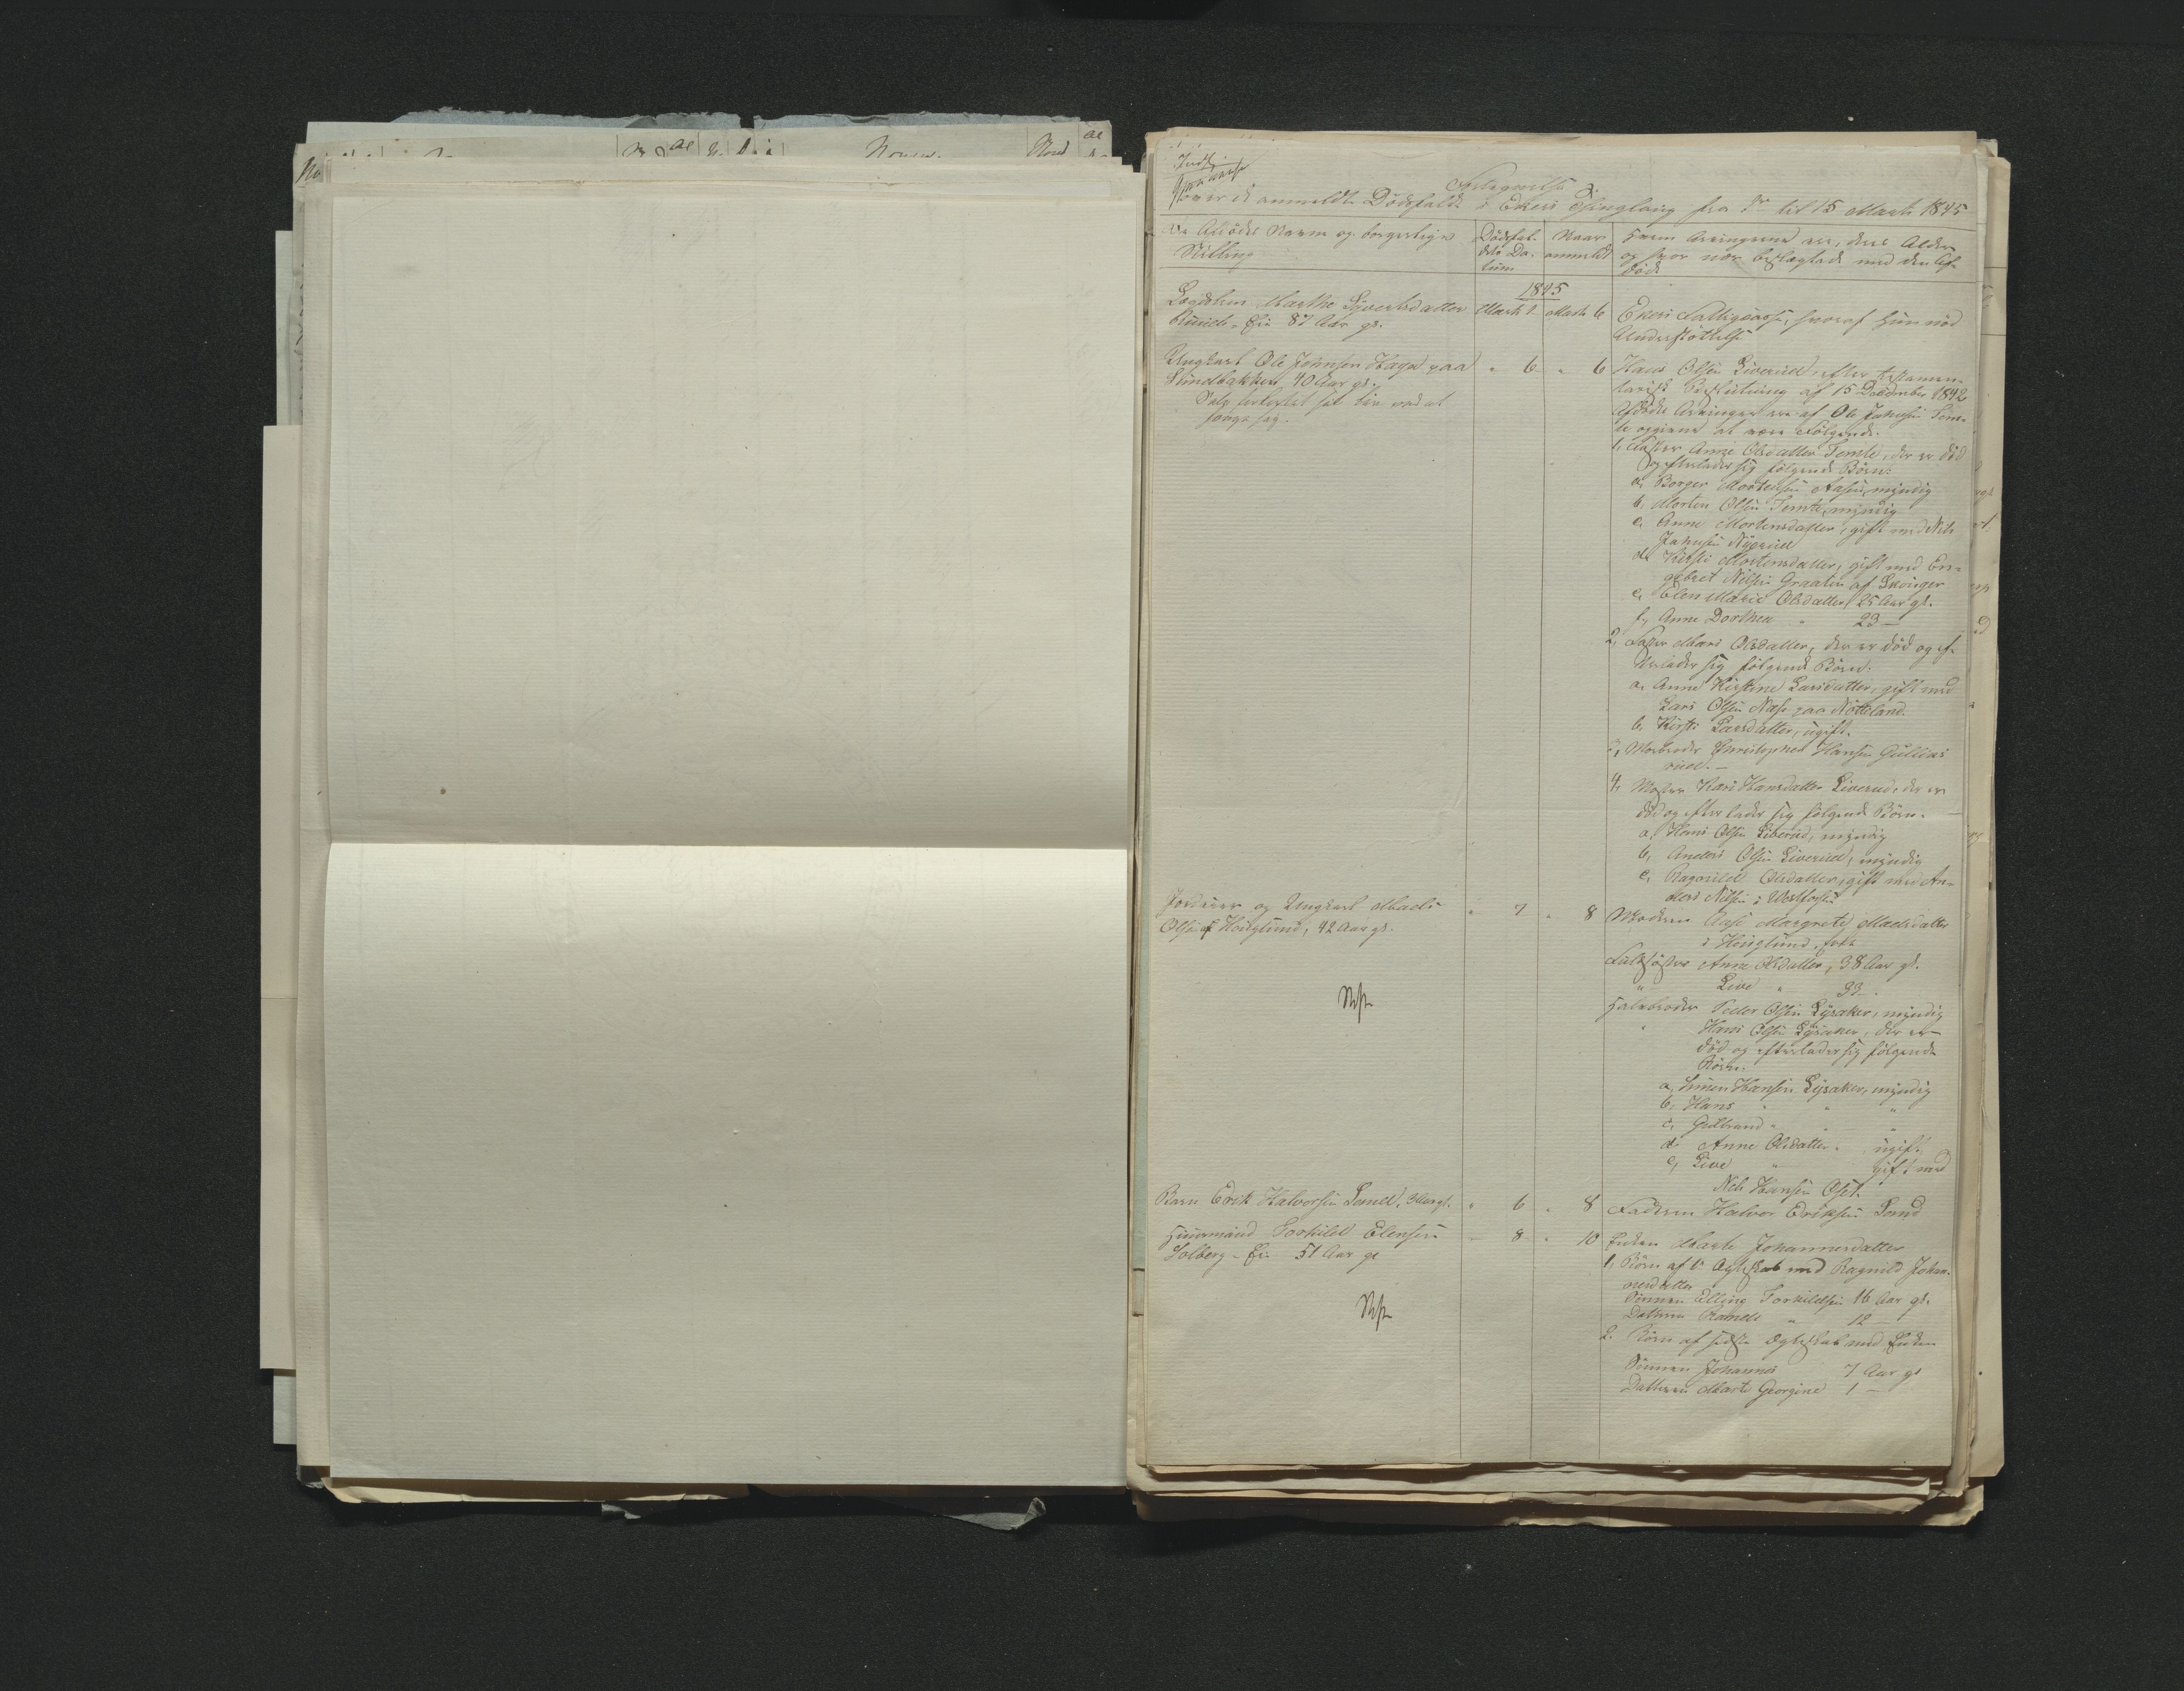 No
Navn
Fortegnelse
over de anmeldte Dödsfald i Ekers Thinglaug fra 1ste til 15 Marts 1845
De Afdödes Navn og borgerlige
Stilling
Dödsfal-
dets Da-
tum
Naar
anmeldt
Hvem Arvingerne ere, deres Alder
og hvor nær beslægtede med den Af-
döde
1845
Lægdslem Marthe Syvertsdatter
Ruud-Eie 87 Aar gl.
Marts 1
Marts 6
Ekers Fattigcasse, hvoraf hun nöd
Understöttelse
Ungkarl Ole Johnsen Hagen paa
Lundbakken 40 Aar gl.
Selv forkortet sit Liv ved at
hænge sig.
" 6
" 6
Hans Olsen Liverud efter testamen-
tarisk Beslutning af 15 December 1842
Afdödes Arvinger ere af Ole Jahnsen Tem-
te opgivne at være Fölgende.
1, Faster Anne Olsdatter Temte, der er död
og efterlader sig fölgende Börn:
a, Borger Mortensen Aasen, myndig
b, Morten Olsen Temte, myndig
c, Anne Mortensdatter, gift med Nils
Jahnsen Nygaard
d, Kirsti Mortensdatter, gift med En-
gebret Nilsen Graaten af Skouger
e, Elen Marie Olsdatter, 25 Aar gl.
f, Anne Dorthea " 23 —
2, Faster Mari Olsdatter, der er död og ef-
terlader sig fölgende Börn.
a, Anne Kirstine Larsdatter, gift med
Lars Olsen Næss paa Nötteland.
b, Kirsti Larsdatter, ugift.
3, Morbroder Christopher Hansen Gullias
rud. —
4, Moster Kari Hansdatter Liverud, der er
död og efterlader sig fölgende Börn.
a, Hans Olsen Liverud, myndig
b, Anders Olsen Liverud, myndig
c, Ragnild Olsdatter, gift med An-
ders Nilsen i Vestfossen
Jordeier og Ungkarl Mads
Olsen af Houglund, 42 Aar gl.
" 7
" 8
Moderen Anne Margrete Madsdatter
i Houglund
Fuldsöster Anne Olsdatter, 38 Aar gl.
" Live " 33 —
Halvbroder Peder Olsen Lysaker, myndig
" Hans Olsen Lysaker, der er
död og efterlader sig fölgende
Börn.
a, Simen Hansen Lysaker, myndig
b, Hans " " "
c, Gulbrand " " "
d, Anne Olsdatter " ugift
e, Live " gift med
Nils Hansen Oset
Barn Erik Halvorsen Sand, 3 Aar gl.
" 6
" 8
Faderen Halvor Eriksen Sand
Huusmand Torkild Elensen
Solberg-Eie 51 Aar gl
— 8
" 10
Enken Marte Johannesdatter
1, Börn af 1ste Ægteskab med Ragnild Johan-
nesdatter
Sönnen Elling Torkildsen 16 Aar gl.
Datteren Randi " 12 —
2. Börn af sidste Ægteskab med Enken
Sönnen Johannes 7 Aar gl
Datteren Marte Georgine 1 —